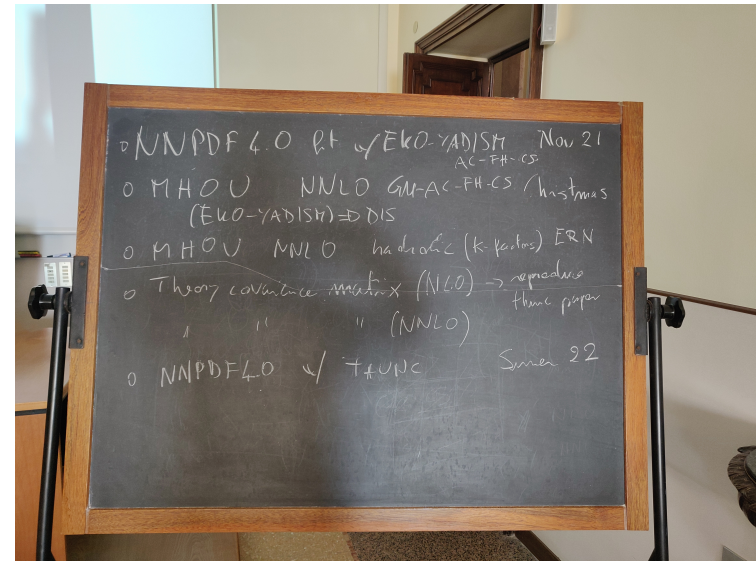 o NNPDF4.0 fit w/ EKO-YADISM Nov 21
AC-FH-CS
o MHOU NNLO GM-AC-FH-CS Christmas
(EKO-YADISM) ⇒ DIS
o MHOU NNLO hadronic (k-factors) ERN
o Theory covariance matrix (NLO) → reproduce
thunc paper
" " " (NNLO)
o NNPDF4.0 w/ THUNC Summer 22